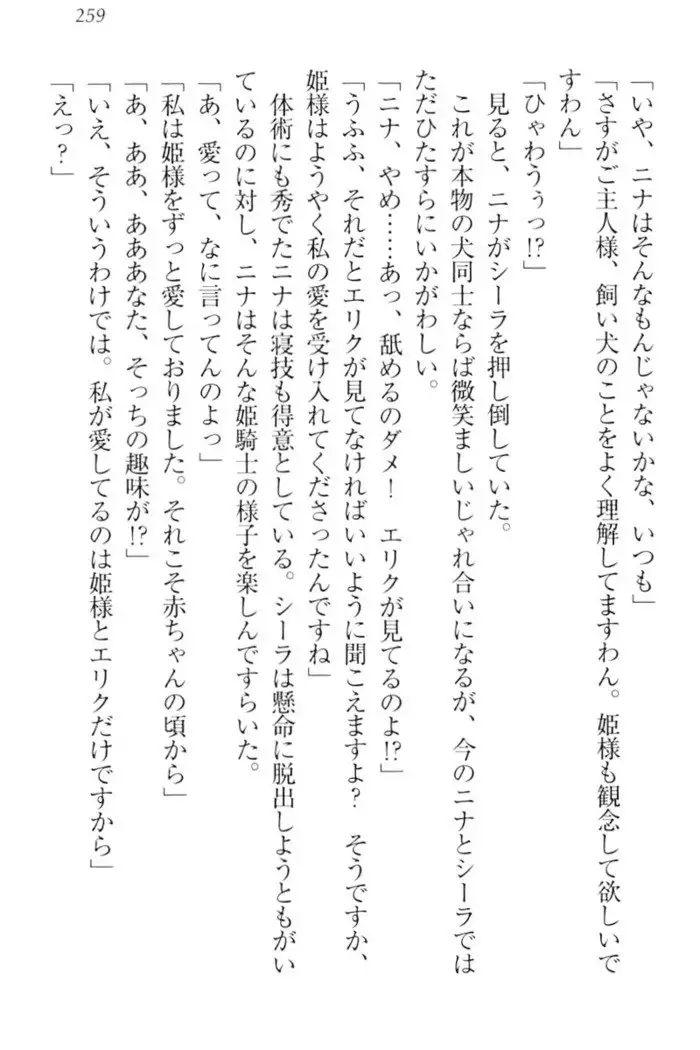 259
「いや、ニナはそんなもんじゃないかな、いつも」
「さすがご主人様、飼い犬のことをよく理解してますわん。姫様も観念して欲しいで
すわん」
「ひゃわうぅっ!?」
見ると、ニナがシーラを押し倒していた。
これが本物の犬同士ならば微笑ましいじゃれ合いになるが、今のニナとシーラでは
ただひたすらにいかがわしい。
「ニナ、やめ……あっ、舐めるのダメ！　エリクが見てるのよ!?」
「うふふ、それだとエリクが見てなければいいように聞こえますよ？　そうですか、
姫様はようやく私の愛を受け入れてくださったんですね」
体術にも秀でたニナは寝技も得意としている。シーラは懸命に脱出しようともがい
ているのに対し、ニナはそんな姫騎士の様子を楽しんですらいた。
「あ、愛って、なに言ってんのよっ」
「私は姫様をずっと愛しておりました。それこそ赤ちゃんの頃から」
「あ、ああ、あああなた、そっちの趣味が!?」
「いえ、そういうわけでは。私が愛してるのは姫様とエリクだけですから」
「えっ？」